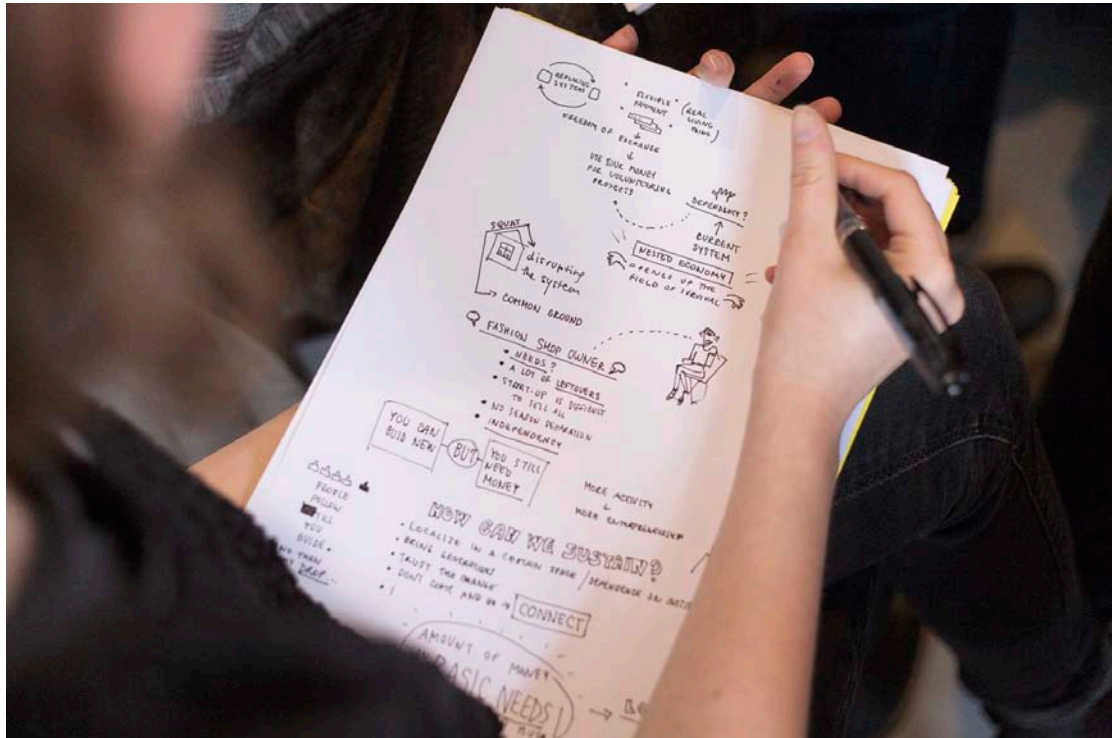 SYSTEM
FLEXIBLE
PAYMENT
(REAL
LIVING
THING)
FREEDOM OF EXCHANGE
USE YOUR MONEY
FOR VOLUNTEERING
PROJECTS
DEPENDENCY?
CURRENT
SYSTEM
NESTED ECONOMY
OPENES UP THE
FIELD OF SURVIVAL
SQUAT
disrupting
the system
COMMON GROUND
FASHION SHOP OWNER
• NEEDS?
• A LOT OF LEFTOVERS
• START-UP IS DIFFICULT
TO SELL ALL
• NO SEASON SEPARATION
• INDEPENDENCY
YOU CAN
BUID NEW
BUT
YOU STILL
NEED
MONEY
MORE ACTIVITY
MORE
PEOPLE
FOLLOW
YOU
GUIDE
THEN
DROP...
HOW CAN WE SUSTAIN?
• LOCALIZE IN A CERTAIN SPACE / DEPENDENCE ON
• BRING GENERATIONS
• TRUST THE CHANGE
• DON'T COME AND GO → CONNECT
AMOUNT OF MONEY
BASIC NEEDS!